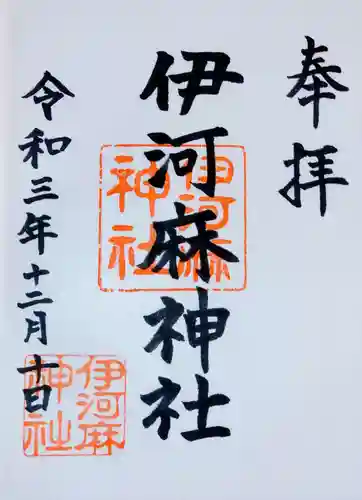 奉拝
伊河麻神社
伊河麻
神社
令和三年十二月十一日
伊河麻
神社